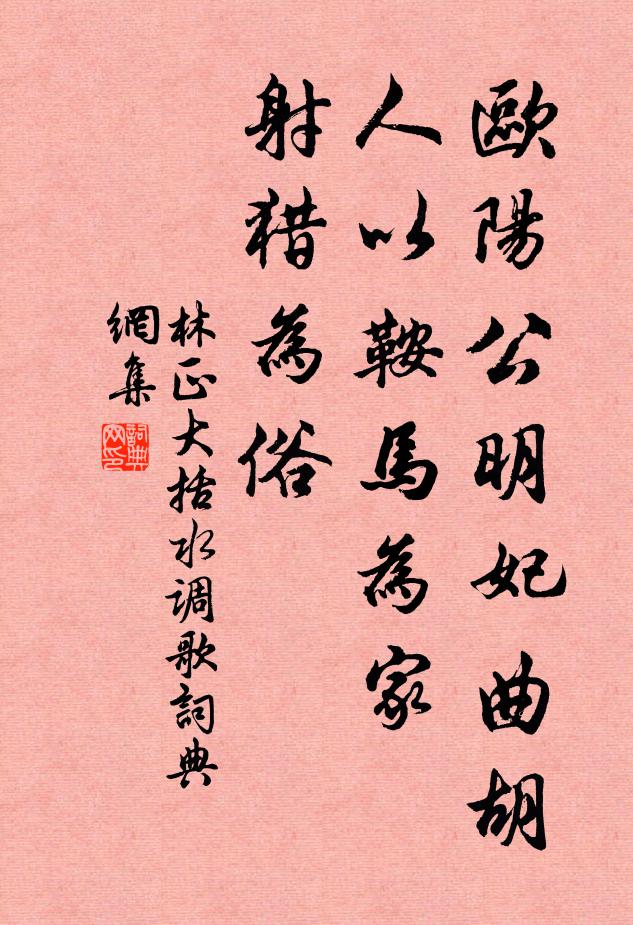 歐陽公明妃曲胡
人以鞍馬為家
射猎為俗
林正大括水调歌詞典
網集
詞典
网印